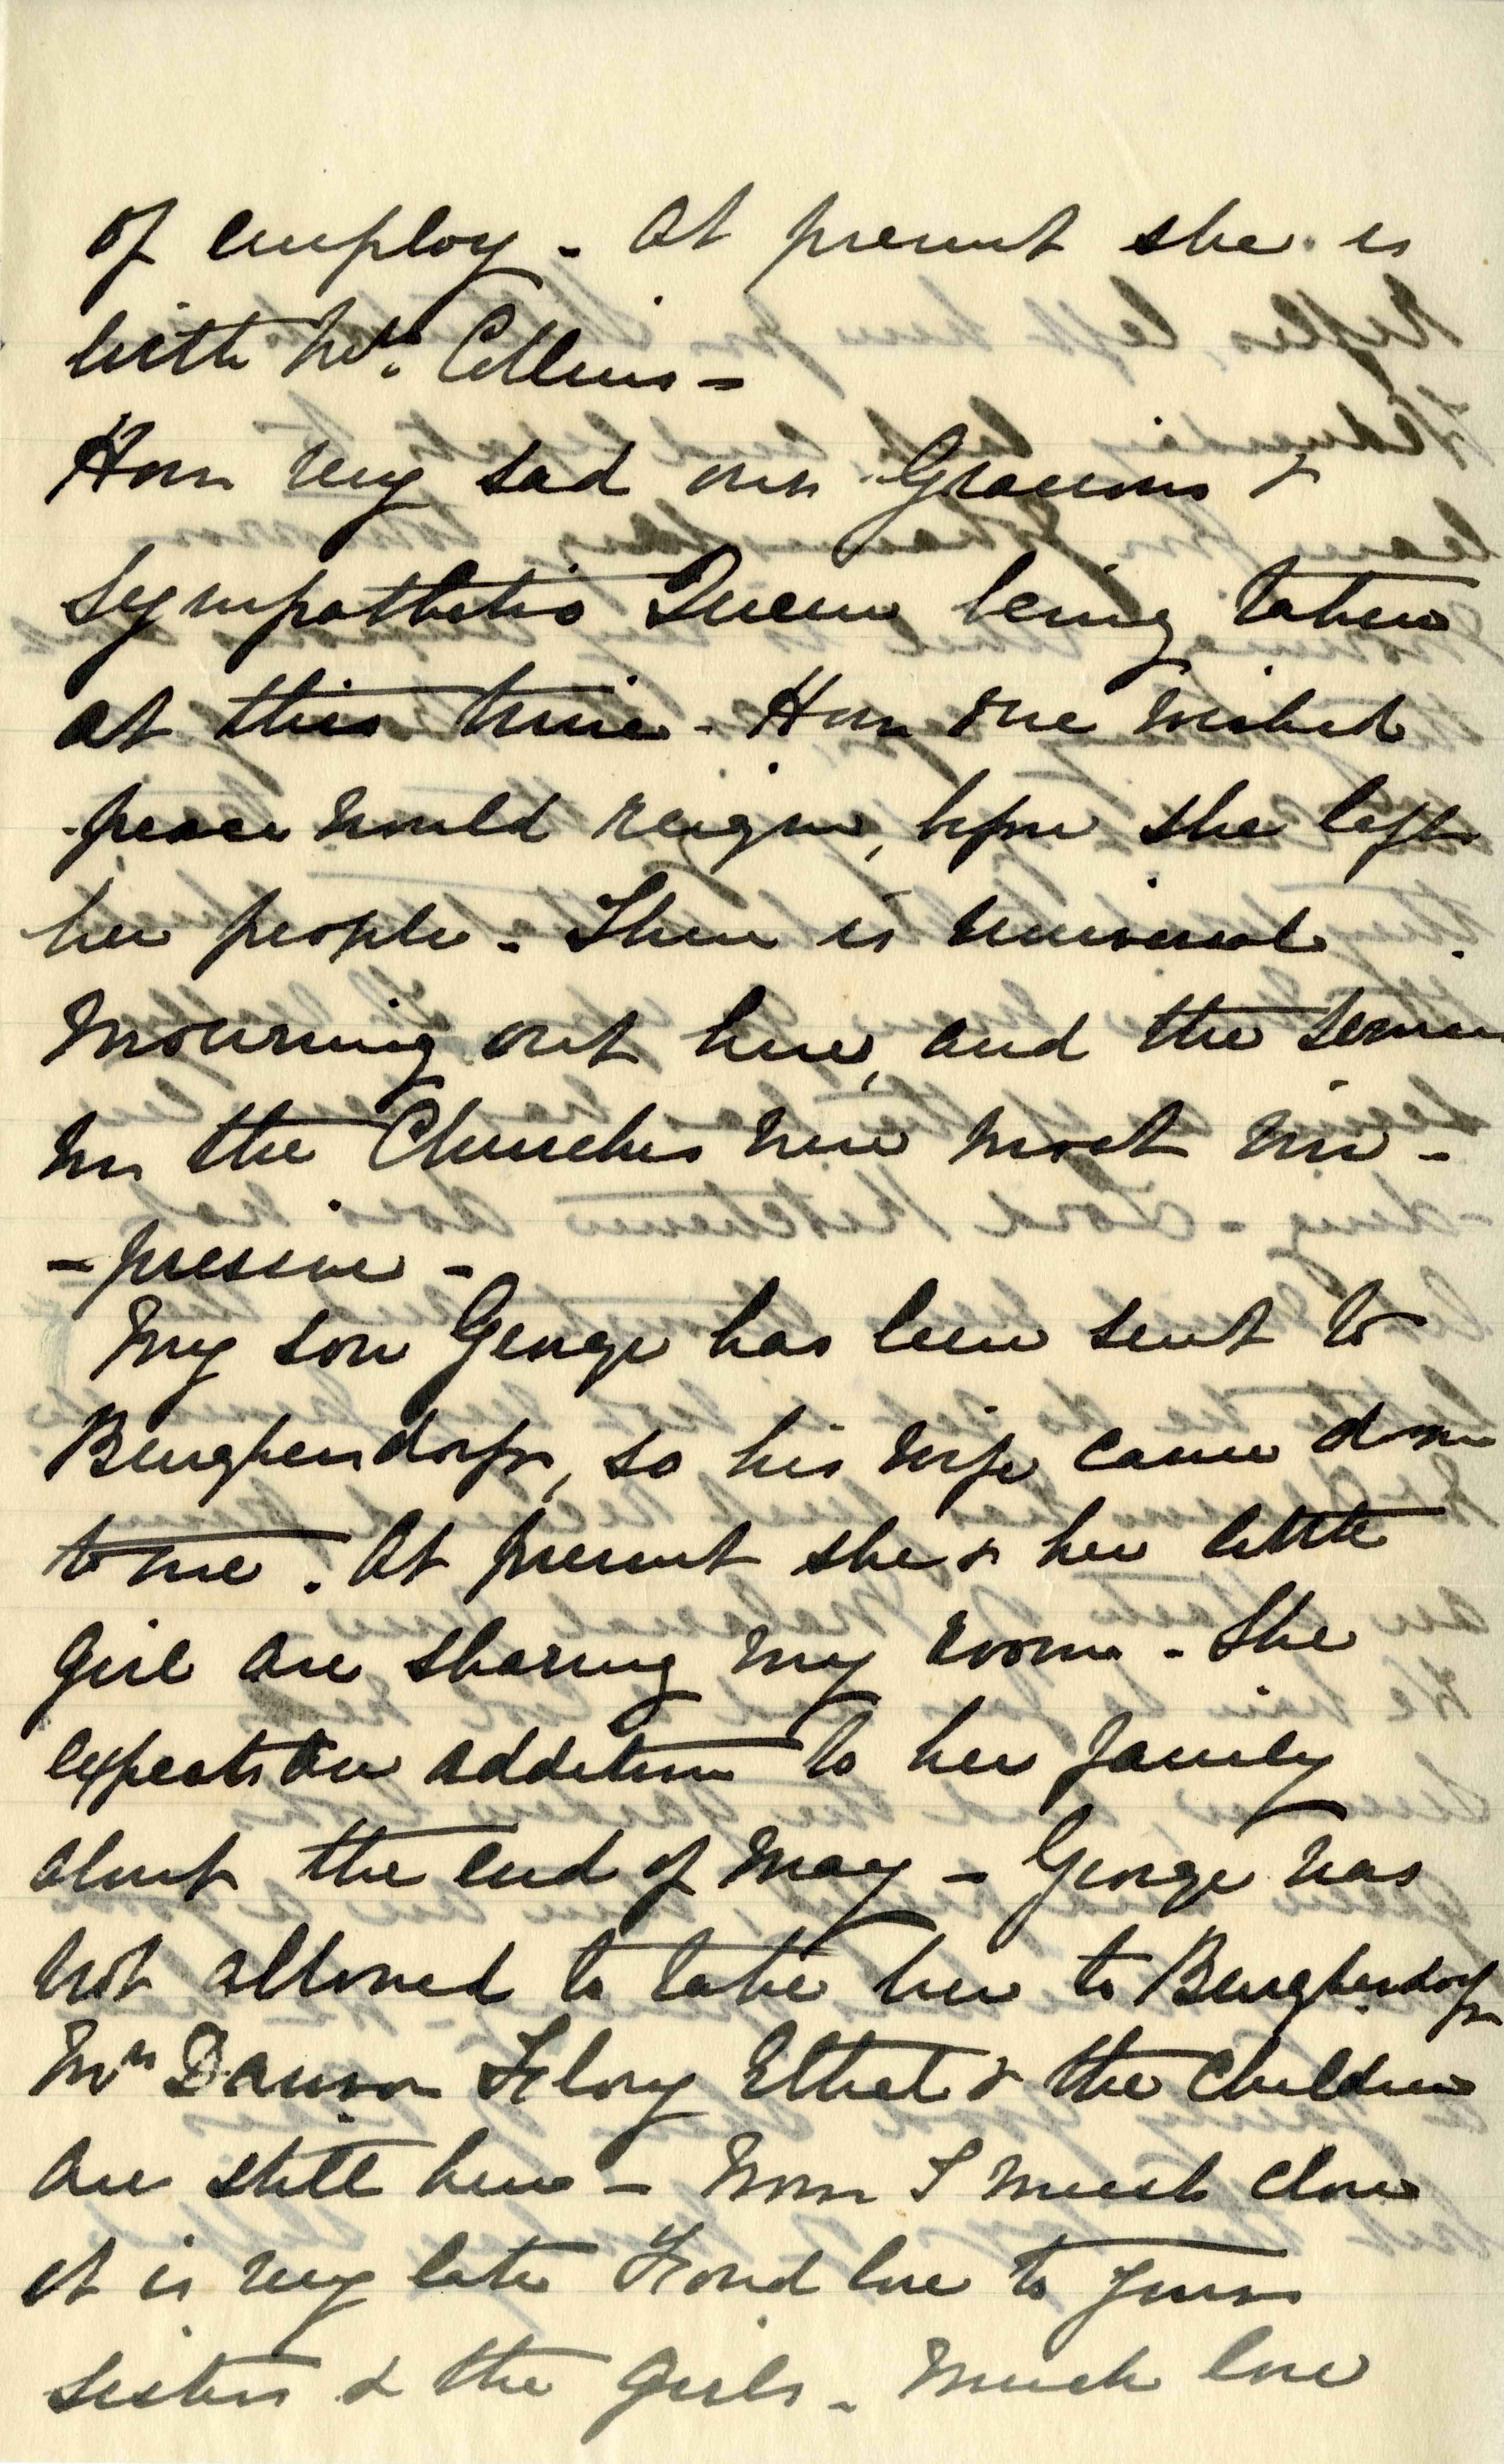 of employ - At present she is
with Mrs. Collins -
How very sad our Gracious &
Sympathetic Queen being taken
at this time - How one wished
peace would reign, before she left
her people - There is universal
mourning out here, and the services
in the Churches were most im-
-pressive -
My son George has been sent to
Burghersdorp, so his wife came down
to me. At present she & her little
girl are sharing my room - She
expects an addition to her family
about the end of May - George was
not allowed to take her to Burghersdorp
Mrs Dawson Flory Ethel & the children
are still here - Now I must close
it is very late Fond love to your
sisters & the girls - Much love